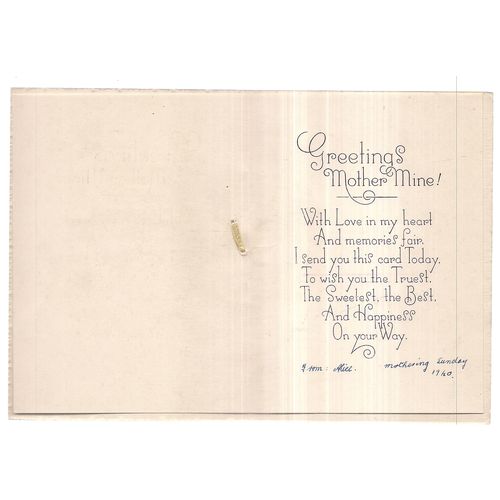 Greetings
Mother Mine!
With Love in my heart
And memories fair.
I send you this card Today,
To wish you the Truest,
The Sweetest, the Best,
And Happiness
On your Way.
From: Alice.
mothering Sunday
1940.